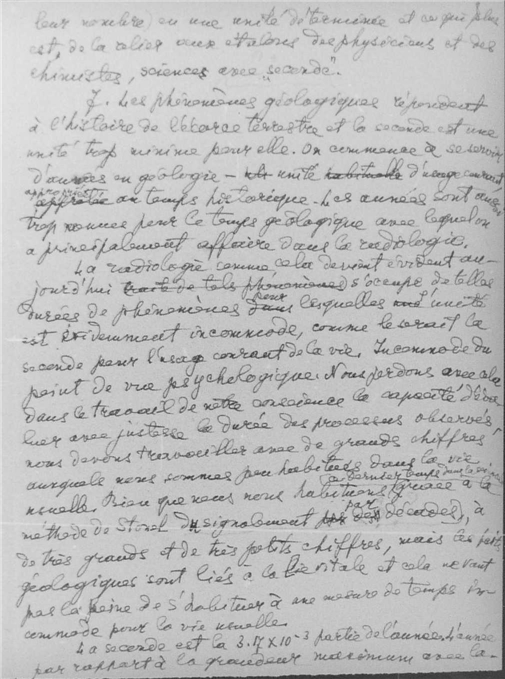 leur nombre) en une unité déterminée et ce qui plus
est, de la relier aux étalons des physiciens et des
chimistes, sciences avec "seconde".
7. Les phénomènes géologiques répondent
à l'histoire de l'écorce terrestre et la seconde est une
unité trop minime pour elle. On commence à se servir
d'années en géologie – unité habituelle d'usage courant
appropriée
au temps historique. Les années sont aussi
trop menues pour le temps géologique avec lequel on
a principalement affaire dans la radiologie.
La radiologie comme cela devient évident au-
jourd'hui traite de tels phénomènes s'occupe de telles
durées de phénomènes dans pour lesquelles l'unité
est évidemment incommode, comme le serait la
seconde pour l'usage courant de la vie. Incommode du
point de vue psychologique. Nous perdons avec cela
dans le travail de notre conscience la capacité d'éva-
luer avec justesse la durée des processus observés,
nous devons travailler avec de grands chiffres
auxquels nous sommes peu habitués dans la vie
dernier temps dans la
usuelle. Bien que nous nous habitions grâce à la
par
méthode de signalement décades), à
de très grands et de très petits chiffres, mais ces faits
géologiques sont liés à la vie vitale et cela ne vaut
pas la peine de s'habituer à une mesure de temps in-
commode pour la vie usuelle.
La seconde est la 3.17 x 10-3 partie de l'année. L'année
par rapport à la grandeur maximum avec la-